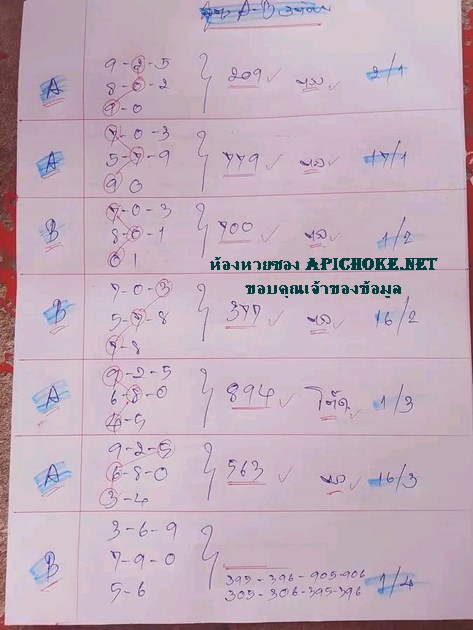 A-B
A
9-2-5
8-0-2
9-0
209
2/1
A
7-0-3
5-7-9
9 0
779
17/1
B
7-0-3
8-0-1
0 1
700
1/2
ห้องหวยซอง APICHOKE.NET
ขอบคุณเจ้าของข้อมูล
B
7-0-3
5-7-8
7-8
377
16/2
A
9-2-5
6-8-0
4-5
894 โต๊ด
1/3
A
9-2-5
6-8-0
3-4
563
16/3
B
3-6-9
7-9-0
5-6
395-396-905-906
305-306-395-396
1/4